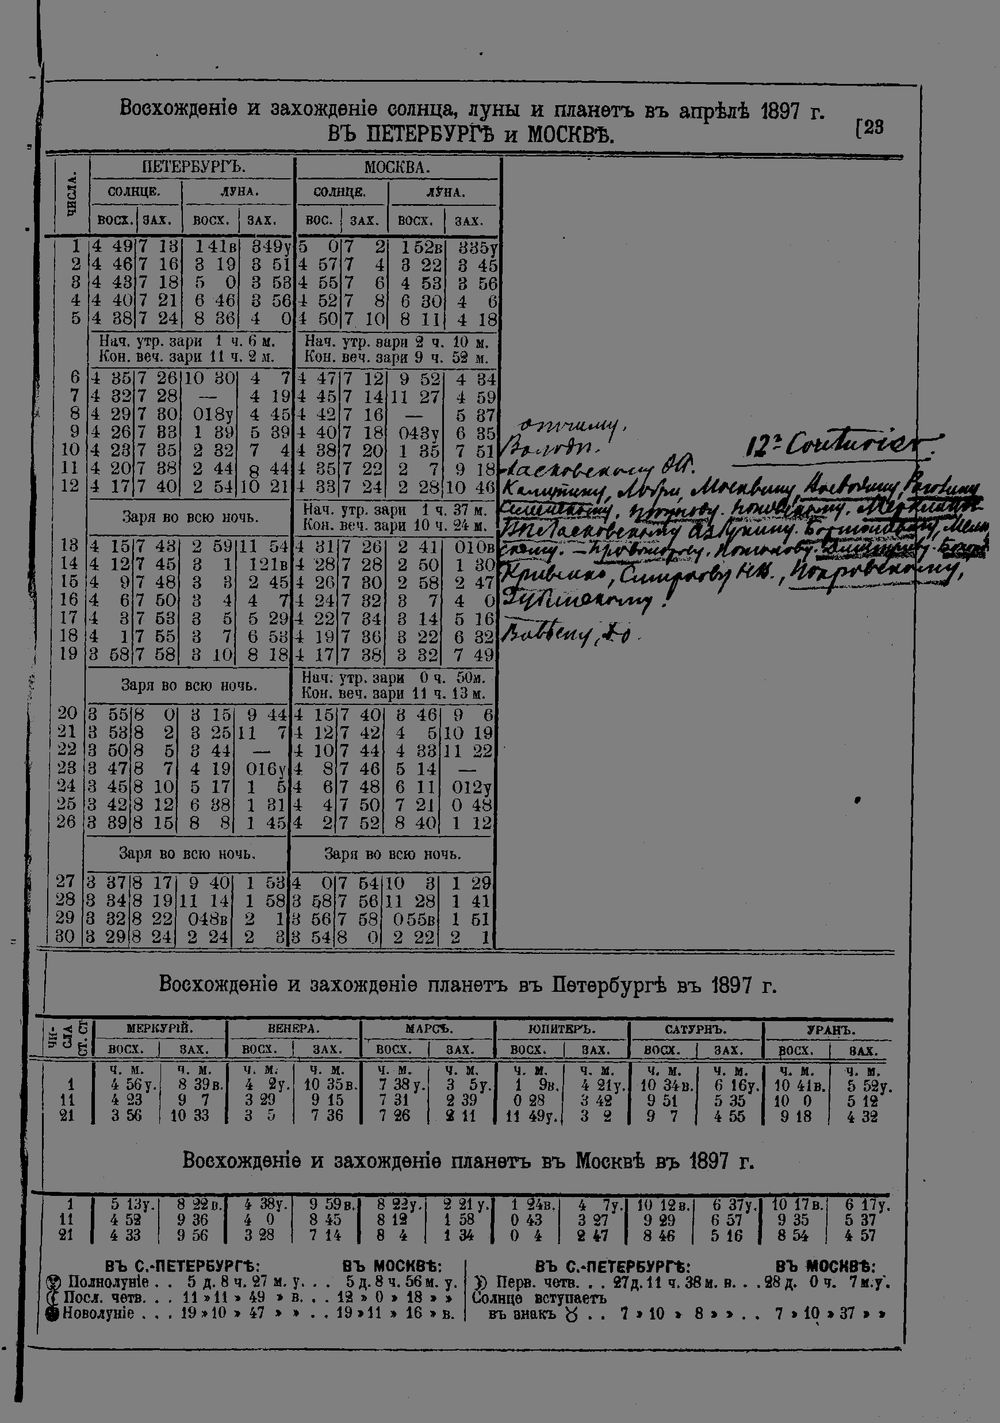 Восхожденіе и захожденіе солнца, луны и планетъ въ апрѣлѣ 1897 г.
ВЪ ПЕТЕРБУРГѢ и МОСКВѢ.
[23
ЧИСЛА. ПЕТЕРБУРГЪ. МОСКВА.
СОЛНЦЕ. ЛУНА. СОЛНЦЕ. ЛУНА.
ВОСХ. ЗАХ. ВОСХ. ЗАХ. ВОС. ЗАХ. ВОСХ. ЗАХ.
1 4 49 7 13 1 41в 3 49у 5 0 7 2 1 52в 3 35у
2 4 46 7 16 3 19 3 51 4 57 7 4 3 22 3 45
3 4 43 7 18 5 0 3 53 4 55 7 6 4 53 3 56
4 4 40 7 21 6 46 3 56 4 52 7 8 6 30 4 6
5 4 38 7 24 8 36 4 0 4 50 7 10 8 11 4 18
Нач. утр. зари 1 ч. 6 м. Нач. утр. зари 2 ч. 10 м.
Кон. веч. зари 11 ч. 2 м. Кон. веч. зари 9 ч. 52 м.
6 4 35 7 26 10 30 4 7 4 47 7 12 9 52 4 34
7 4 32 7 28 — 4 19 4 45 7 14 11 27 4 59
8 4 29 7 30 0 18у 4 45 4 42 7 16 — 5 37
9 4 26 7 33 1 39 5 39 4 40 7 18 0 43у 6 35
10 4 23 7 35 2 32 7 4 4 38 7 20 1 35 7 51
11 4 20 7 38 2 44 8 44 4 35 7 22 2 7 9 18
12 4 17 7 40 2 54 10 21 4 33 7 24 2 28 10 46
Заря во всю ночь. Нач. утр. зари 1 ч. 37 м.
Кон. веч. зари 10 ч. 24 м.
13 4 15 7 43 2 59 11 54 4 31 7 26 2 41 0 10в
14 4 12 7 45 3 1 1 21в 4 28 7 28 2 50 1 30
15 4 9 7 48 3 3 2 45 4 26 7 30 2 58 2 47
16 4 6 7 50 3 4 4 7 4 24 7 32 3 7 4 0
17 4 3 7 53 3 5 5 29 4 22 7 34 3 14 5 16
18 4 1 7 55 3 7 6 53 4 19 7 36 3 22 6 32
19 3 58 7 58 3 10 8 18 4 17 7 38 3 32 7 49
Заря во всю ночь. Нач. утр. зари 0 ч. 50м.
Кон. веч. зари 11 ч. 13 м.
20 3 55 8 0 3 15 9 44 4 15 7 40 3 46 9 6
21 3 53 8 2 3 25 11 7 4 12 7 42 4 5 10 19
22 3 50 8 5 3 44 — 4 10 7 44 4 33 11 22
23 3 47 8 7 4 19 0 16у 4 8 7 46 5 14 —
24 3 45 8 10 5 17 1 5 4 6 7 48 6 11 0 12у
25 3 42 8 12 6 38 1 31 4 4 7 50 7 21 0 48
26 3 39 8 15 8 8 1 45 4 2 7 52 8 40 1 12
Заря во всю ночь. Заря во всю ночь.
27 3 37 8 17 9 40 1 53 4 0 7 54 10 3 1 29
28 3 34 8 19 11 14 1 58 3 58 7 56 11 28 1 41
29 3 32 8 22 0 48в 2 1 3 56 7 58 0 55в 1 51
30 3 29 8 24 2 24 2 3 3 54 8 0 2 22 2 1
Володи.
Калитину, Любри, Москвину,
Кривенко, Смирнову Н.И., Покровскому,
Восхожденіе и захожденіе планетъ въ Петербургѣ въ 1897 г.
ЧИСЛА СТ. СТ МЕРКУРІЙ. ВЕНЕРА. МАРСЪ. ЮПИТЕРЪ. САТУРНЪ. УРАНЪ.
ВОСХ. ЗАХ. ВОСХ. ЗАХ. ВОСХ. ЗАХ. ВОСХ. ЗАХ. ВОСХ. ЗАХ. ВОСХ. ЗАХ.
ч. м. ч. м. ч. м. ч. м. ч. м. ч. м. ч. м. ч. м. ч. м. ч. м. ч. м. ч. м.
1 4 56у. 8 39в. 4 2у. 10 35в. 7 38у. 3 5у. 1 9в. 4 21у. 10 34в. 6 16у. 10 41в. 5 52у.
11 4 23 9 7 3 29 9 15 7 31 2 39 0 28 3 42 9 51 5 35 10 0 5 12
21 3 56 10 33 3 5 7 36 7 26 2 11 11 49у. 3 2 9 7 4 55 9 18 4 32
Восхожденіе и захожденіе планетъ въ Москвѣ въ 1897 г.
1 5 13у. 8 22в. 4 38у. 9 59в. 8 22у. 2 21у. 1 24в. 4 7у. 10 12в. 6 37у. 10 17в. 6 17у.
11 4 52 9 36 4 0 8 45 8 12 1 58 0 43 3 27 9 29 6 57 9 35 5 37
21 4 33 9 56 3 28 7 14 8 4 1 34 0 4 2 47 8 46 5 16 8 54 4 57
ВЪ С.-ПЕТЕРБУРГѢ: ВЪ МОСКВѢ: ВЪ С.-ПЕТЕРБУРГѢ: ВЪ МОСКВѢ:
Полнолуніе . . 5 д. 8 ч. 27 м. у. . . 5 д. 8 ч. 56 м. у. Перв. четв. . . 27д. 11 ч. 38 м. в. . . 28 д. 0 ч. 7 м.у.
Посл. четв. . . 11 » 11 » 49 » в. . . 12 » 0 » 18 » » Солнце вступаетъ
Новолуніе . . . 19 » 10 » 47 » » . . 19 » 11 » 16 » в. въ знакъ ♉ . . 7 » 10 » 8 » » . . 7 » 10 » 37 » »